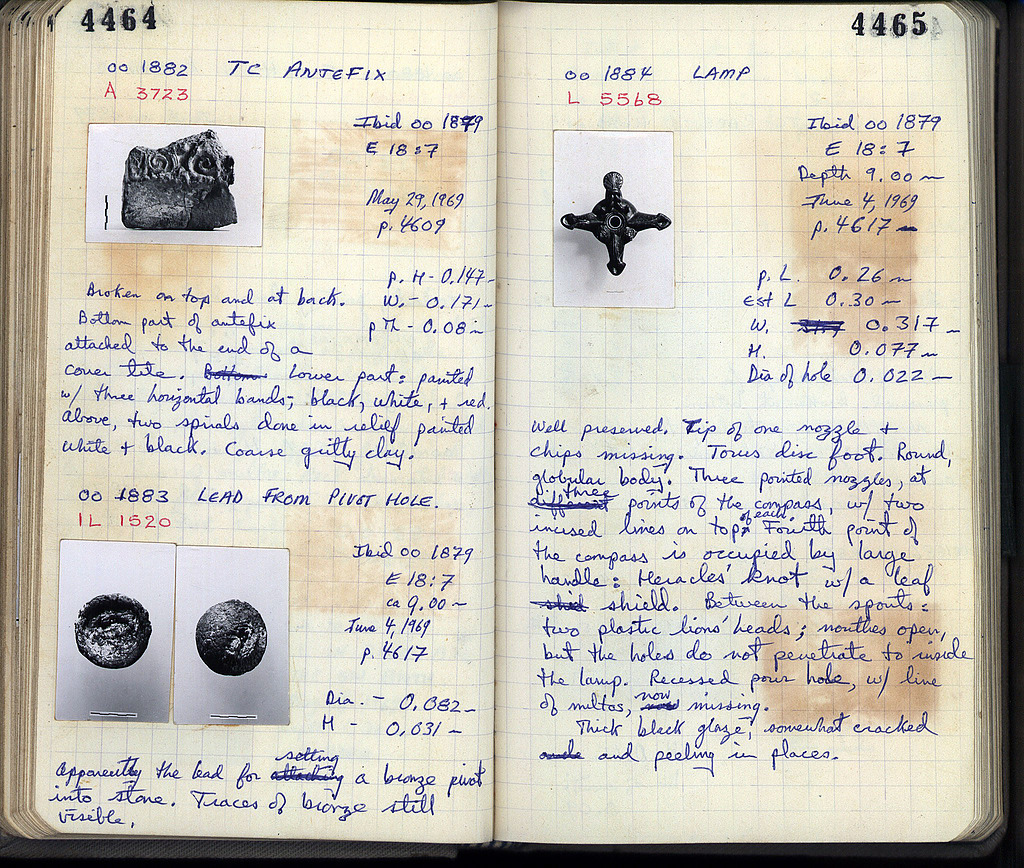 4464
OO 1882 TC ANTEFIX
A 3723
Ibid OO 1879
E 18:7
May 29, 1969
p. 4609
p. H - 0.147
W. - 0.171
p Th - 0.08
Broken on top and at back.
Bottom part of antefix
attached to the end of a
cover tile. Lower part: painted
w/ three horizontal bands; black, white, + red.
Above, two spirals done in relief painted
white + black. Coarse gritty clay.
OO 1883 LEAD FROM PIVOT HOLE.
IL 1520
Ibid OO 1879
E 18:7
ca 9.00 m
June 4, 1969
p. 4617
Dia. - 0.082
H - 0.031
Apparently the lead for setting a bronze pivot
into stone. Traces of bronze still
visible.
4465
OO 1884 LAMP
L 5568
Ibid OO 1879
E 18:7
Depth 9.00 m
June 4, 1969
p. 4617
p. L. 0.26 m
Est L 0.30 m
W. 0.317
H. 0.077 m
Dia of hole 0.022
Well preserved. Tip of one nozzle +
chips missing. Torus disc foot. Round,
globular body. Three pointed nozzles, at
three points of the compass, w/ two
incised lines on top of each. Fourth point of
the compass is occupied by large
handle: Heracles' knot w/ a leaf
shield. Between the spouts:
two plastic lions' heads; mouthes open,
but the holes do not penetrate to inside
the lamp. Recessed pour hole, w/ line
of miltos, now missing.
Thick black glaze, somewhat cracked
and peeling in places.